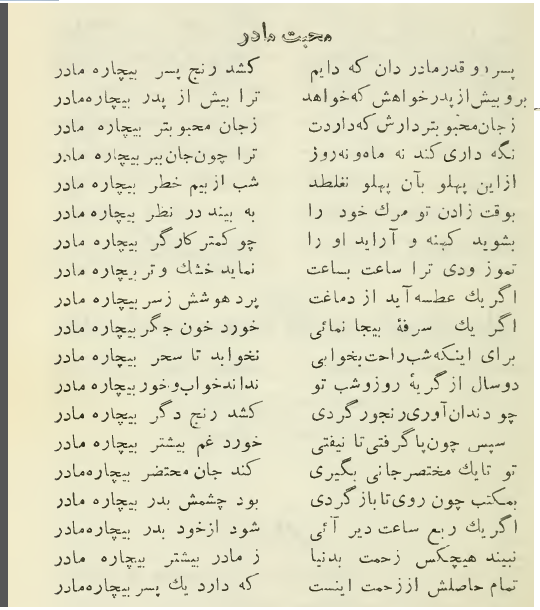 محبت مادر
پسر رو قدر مادر دان که دایم کشد رنج پسر بیچاره مادر
برو بیش از پدر خواهش که خواهد ترا بیش از پدر بیچاره مادر
زجان محبوبتر دارش که داردت زجان محبوبتر بیچاره مادر
نگه داری کند نه ماه و نه روز ترا چون جان ببر بیچاره مادر
ازاین پهلو بآن پهلو نغلطد شب از بیم خطر بیچاره مادر
بوقت زادن تو مرك خود را به بیند در نظر بیچاره مادر
بشوید کهنه و آراید او را چو کمتر کارگر بیچاره مادر
تموز ودی ترا ساعت بساعت نماید خشك و تر بیچاره مادر
اگر یك عطسه آید از دماغت پرد هوشش زسر بیچاره مادر
اگر یك سرفهٔ بیجا نمائی خورد خون جگر بیچاره مادر
برای اینکه شب راحت بخوابی نخوابد تا سحر بیچاره مادر
دوسال از گریهٔ روزوشب تو نداند خواب وخور بیچاره مادر
چو دندان آوری رنجور گردی کشد رنج دگر بیچاره مادر
سپس چون پا گرفتی تا نیفتی خورد غم بیشتر بیچاره مادر
تو تا یك مختصر جانی بگیری کند جان محتضر بیچاره مادر
بمکتب چون روی تا باز گردی بود چشمش بدر بیچاره مادر
اگر یك ربع ساعت دیر آئی شود ازخود بدر بیچاره مادر
نبیند هیچکس زحمت بدنیا ز مادر بیشتر بیچاره مادر
تمام حاصلش اززحمت اینست که دارد یك پسر بیچاره مادر